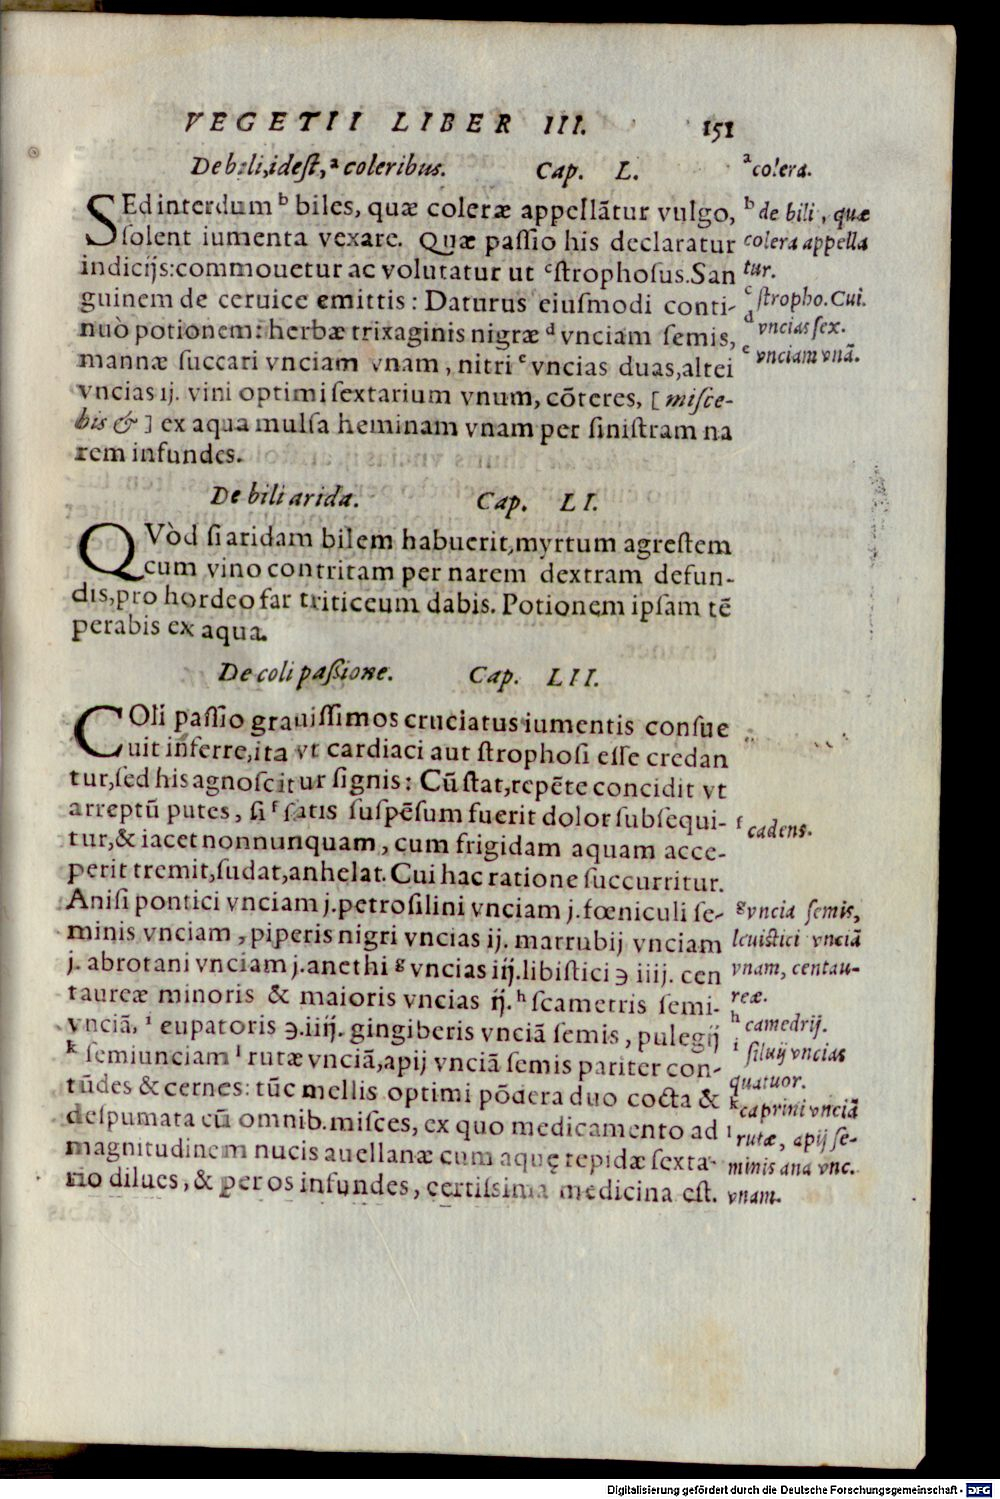 VEGETII LIBER III. 151
De bili, idest, ᵃ coleribus. Cap. L.
SEd interdum ᵇ biles, quæ coleræ appellãtur vulgo,
ſolent iumenta vexare. Quæ paſſio his declaratur
indicijs: commouetur ac volutatur ut ᶜ ſtrophoſus. San
guinem de ceruice emittis: Daturus eiuſmodi conti-
nuò potionem: herbæ trixaginis nigræ ᵈ vnciam ſemis,
mannæ ſuccari vnciam vnam, nitri ᵉ vncias duas, altei
vncias ij. vini optimi ſextarium vnum, cõteres, [ miſce-
bis & ] ex aqua mulſa heminam vnam per ſiniſtram na
rem infundes.
ᵃ colera.
ᵇ de bili, quæ
colera appella
tur.
ᶜ ſtropho. Cui.
ᵈ vncias ſex.
ᵉ vnciam vnã.
De bili arida. Cap. LI.
QVòd ſi aridam bilem habuerit, myrtum agreſtem
cum vino contritam per narem dextram defun-
dis, pro hordeo far triticeum dabis. Potionem ipſam tẽ
perabis ex aqua.
De coli paſſione. Cap. LII.
COli paſſio grauiſſimos cruciatus iumentis conſue
uit inferre, ita vt cardiaci aut ſtrophoſi eſſe credan
tur, ſed his agnoſcitur ſignis: Cũ ſtat, repẽte concidit vt
arreptũ putes, ſi ᶠ ſatis ſuſpẽſum fuerit dolor ſubſequi-
tur, & iacet nonnunquam, cum frigidam aquam acce-
perit tremit, ſudat, anhelat. Cui hac ratione ſuccurritur.
Aniſi pontici vnciam j. petroſilini vnciam j. fœniculi ſe-
minis vnciam, piperis nigri vncias ij. marrubij vnciam
j. abrotani vnciam j. anethi ᵍ vncias iij. libiſtici ℈ iiij. cen
taureæ minoris & maioris vncias ij. ʰ ſcametris ſemi-
vnciã, ⁱ eupatoris ℈. iiij. gingiberis vnciã ſemis, pulegij
ᵏ ſemiunciam ˡ rutæ vnciã, apij vnciã ſemis pariter con-
tũdes & cernes: tũc mellis optimi põdera duo cocta &
deſpumata cũ omnib. miſces, ex quo medicamento ad
magnitudinem nucis auellanæ cum aquę tepidæ ſexta-
rio dilues, & per os infundes, certiſsima medicina eſt.
ᶠ cadens.
ᵍ vncia ſemis,
leuiſtici vnciã
vnam, centau-
reæ.
ʰ camedrij.
ⁱ ſiluij vncias
quatuor.
ᵏ caprini vnciã
ˡ rutæ, apij ſe-
minis ana vnc.
vnam.
Digitalisierung gefördert durch die Deutsche Forschungsgemeinschaft - DFG